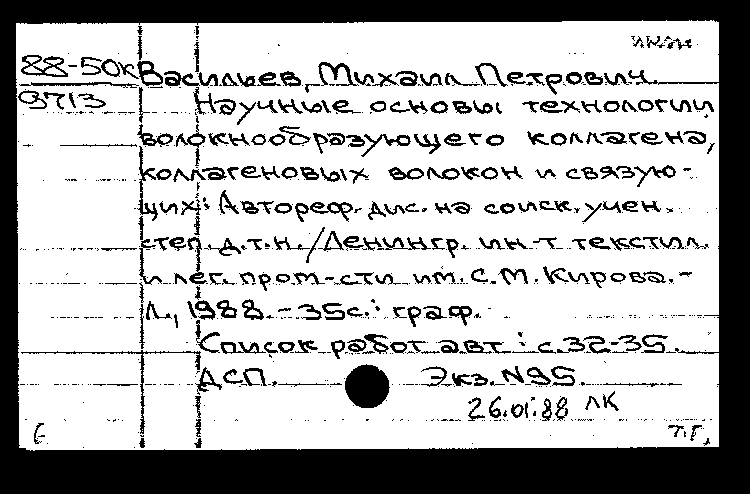 88-50к Васильев, Михаил Петрович.
9713 Научные основы технологии
волокнообразующего коллагена,
коллагеновых волокон и связую-
щих: Автореф. дис. на соиск. учен.
степ. д.т.н. /Ленингр. ин-т текстил.
и лег. пром-сти им. С.М. Кирова. -
Л., 1988. - 35с.: граф.
Список работ авт : с.32-35.
ДСП. Экз. N95.
26.01.88 ЛК
Т.Г.